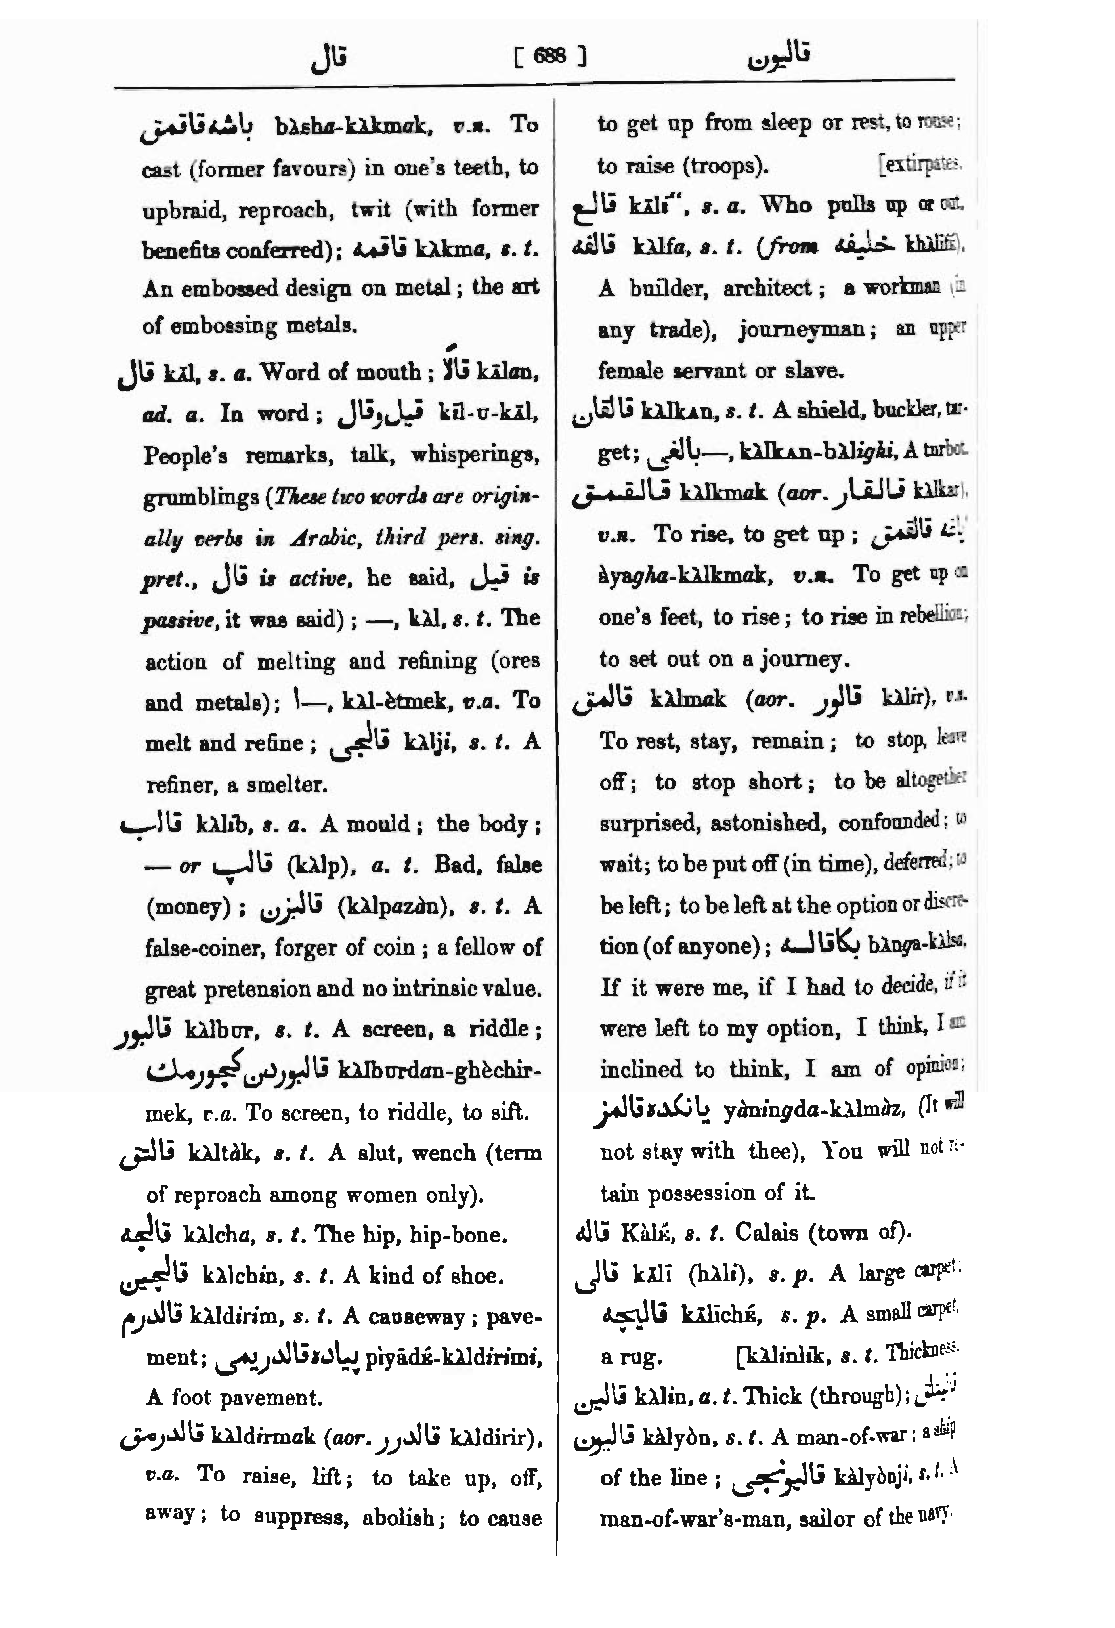 قال [ 688 ] قاليون
باشه قاقمق bàsha-kàkmak, v.n. To
cast (former favours) in one's teeth, to
upbraid, reproach, twit (with former
benefits conferred); قاقمه kàkma, s. t.
An embossed design on metal; the art
of embossing metals.
قال kāl, s. a. Word of mouth; قالاً kālan,
ad. a. In word; قيل وقال kīl-u-kāl,
People's remarks, talk, whisperings,
grumblings (These two words are origin-
ally verbs in Arabic, third pers. sing.
pret., قال is active, he said, قيل is
passive, it was said); —, kàl, s. t. The
action of melting and refining (ores
and metals); ا—, kàl-ètmek, v.a. To
melt and refine; قالجى kàlji, s. t. A
refiner, a smelter.
قالب kàlib, s. a. A mould; the body;
— or قالپ (kàlp), a. t. Bad, false
(money); قالپزن (kàlpazàn), s. t. A
false-coiner, forger of coin; a fellow of
great pretension and no intrinsic value.
قالبور kàlbur, s. t. A screen, a riddle;
قالبوردن كچورمك kàlburdan-ghèchir-
mek, v.a. To screen, to riddle, to sift.
قالتق kàltàk, s. t. A slut, wench (term
of reproach among women only).
قالچه kàlcha, s. t. The hip, hip-bone.
قالچين kàlchin, s. t. A kind of shoe.
قالدرم kàldirim, s. t. A causeway; pave-
ment; پياده قالدريمى pìyādé-kàldirimi,
A foot pavement.
قالدرمق kàldirmak (aor. قالدرر kàldirir),
v.a. To raise, lift; to take up, off,
away; to suppress, abolish; to cause
to get up from sleep or rest, to rouse;
to raise (troops). [extirpates.
قالع kāli'', s. a. Who pulls up or out,
قالفه kàlfa, s. t. (from خليفه khàlifé),
A builder, architect; a workman (in
any trade), journeyman; an upper
female servant or slave.
قالقان kàlkan, s. t. A shield, buckler, tar-
get; بالغى—, kàlkan-bàlighi, A turbot.
قالقمق kàlkmak (aor. قالقار kàlkar),
v.n. To rise, to get up; قالقمق
àyagha-kàlkmak, v.n. To get up on
one's feet, to rise; to rise in rebellion;
to set out on a journey.
قالمق kàlmak (aor. قالور kàlir), v.n.
To rest, stay, remain; to stop, leave
off; to stop short; to be altogether
surprised, astonished, confounded; to
wait; to be put off (in time), deferred; to
be left; to be left at the option or discre-
tion (of anyone); بكا قالسه bànga-kàlsa,
If it were me, if I had to decide, if it
were left to my option, I think, I am
inclined to think, I am of opinion;
يانكده قالمز yàningda-kàlmàz, (It will
not stay with thee), You will not re-
tain possession of it.
قاله Kàlé, s. t. Calais (town of).
قالى kālī (hàlí), s. p. A large carpet.
قاليچه kālīché, s. p. A small carpet,
a rug. [kàlinlik, s. t. Thickness.
قالين kàlin, a. t. Thick (through);
قاليون kàlyòn, s. t. A man-of-war; a ship
of the line; قاليونجى kàlyònji, s. t. A
man-of-war's-man, sailor of the navy.